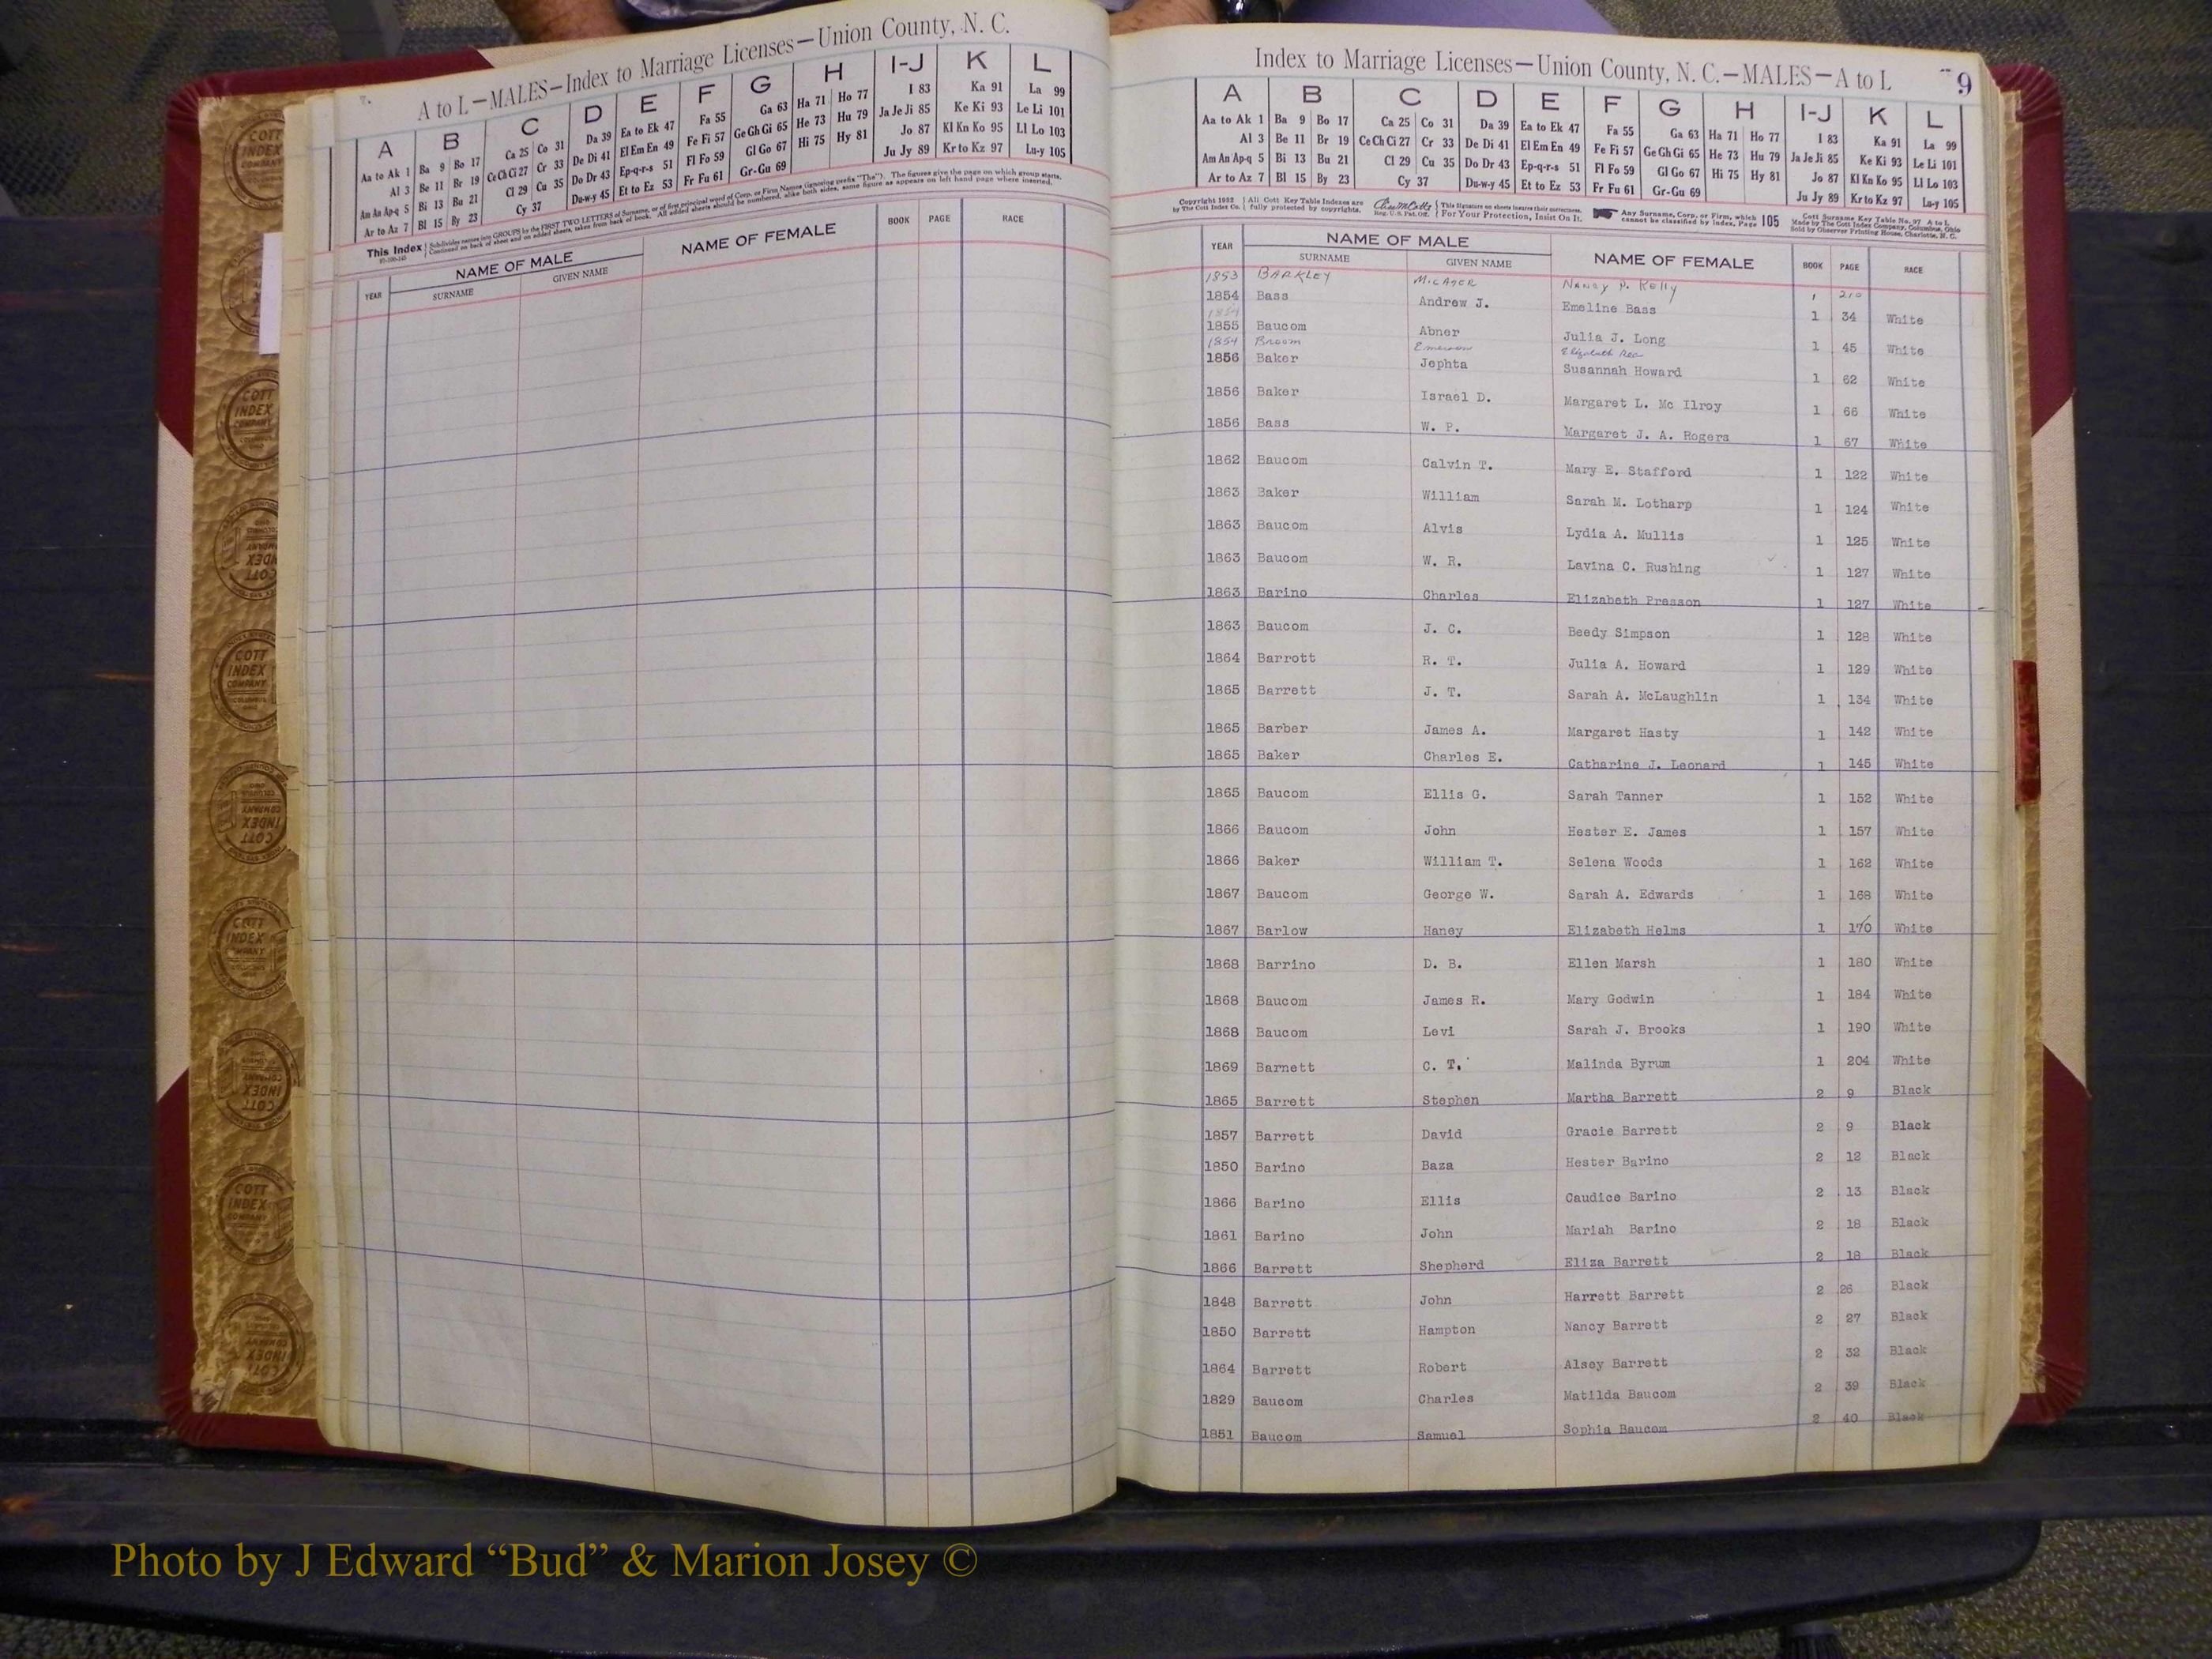 A to L—MALES—Index to Marriage Licenses—Union County, N. C.
A B C D E F G H I-J K L
Aa to Ak 1 Ba 9 Bo 17 Ca 25 Co 31 Da 39 Ea to Ek 47 Fa 55 Ga 63 Ha 71 Ho 77 I 83 Ka 91 La 99
Al 3 Be 11 Br 19 Ce Ch Ci 27 Cr 33 De Di 41 El Em En 49 Fe Fi 57 Ge Gh Gi 65 He 73 Hu 79 Ja Je Ji 85 Ke Ki 93 Le Li 101
Am An Ap-q 5 Bi 13 Bu 21 Cl 29 Cu 35 Do Dr 43 Ep-q-r-s 51 Fl Fo 59 Gl Go 67 Hi 75 Hy 81 Jo 87 Kl Kn Ko 95 Ll Lo 103
Ar to Az 7 Bl 15 By 23 Cy 37 Du-w-y 45 Et to Ez 53 Fr Fu 61 Gr-Gu 69 Ju Jy 89 Kr to Kz 97 Lu-y 105
This Index Subdivides names into GROUPS by the FIRST TWO LETTERS of Surname, or of first principal word of Corp. or Firm Names (ignoring prefix "The"). The figures give the page on which group starts.
Continued on back of sheet and on added sheets, taken from back of book. All added sheets should be numbered, alike both sides, same figure as appears on left hand page where inserted.
YEAR NAME OF MALE NAME OF FEMALE BOOK PAGE RACE
SURNAME GIVEN NAME
Index to Marriage Licenses—Union County, N. C.—MALES—A to L 9
A B C D E F G H I-J K L
Aa to Ak 1 Ba 9 Bo 17 Ca 25 Co 31 Da 39 Ea to Ek 47 Fa 55 Ga 63 Ha 71 Ho 77 I 83 Ka 91 La 99
Al 3 Be 11 Br 19 Ce Ch Ci 27 Cr 33 De Di 41 El Em En 49 Fe Fi 57 Ge Gh Gi 65 He 73 Hu 79 Ja Je Ji 85 Ke Ki 93 Le Li 101
Am An Ap-q 5 Bi 13 Bu 21 Cl 29 Cu 35 Do Dr 43 Ep-q-r-s 51 Fl Fo 59 Gl Go 67 Hi 75 Hy 81 Jo 87 Kl Kn Ko 95 Ll Lo 103
Ar to Az 7 Bl 15 By 23 Cy 37 Du-w-y 45 Et to Ez 53 Fr Fu 61 Gr-Gu 69 Ju Jy 89 Kr to Kz 97 Lu-y 105
Copyright 1932 All Cott Key Table Indexes are This signature on sheets insures their correctness. Any Surname, Corp. or Firm, which 105 Cott Surname Key Table No. 97 A to L
by The Cott Index Co. fully protected by copyrights. Reg. U. S. Pat. Off. For Your Protection, Insist On It. cannot be classified by Index, Page Made by The Cott Index Company, Columbus, Ohio
Sold by Observer Printing House, Charlotte, N. C.
YEAR NAME OF MALE NAME OF FEMALE BOOK PAGE RACE
SURNAME GIVEN NAME
1853 BARKLEY Micager Nancy P. Kelly 1 210
1854 Bass Andrew J. Emeline Bass 1 34 White
1854
1855 Baucom Abner Julia J. Long 1 45 White
1854 Broom Emerson Elizabeth Rea
1856 Baker Jephta Susannah Howard 1 62 White
1856 Baker Israel D. Margaret L. Mc Ilroy 1 66 White
1856 Bass W. P. Margaret J. A. Rogers 1 67 White
1862 Baucom Calvin T. Mary E. Stafford 1 122 White
1863 Baker William Sarah M. Lotharp 1 124 White
1863 Baucom Alvis Lydia A. Mullis 1 125 White
1863 Baucom W. R. Lavina C. Rushing 1 127 White
1863 Barino Charles Elizabeth Presson 1 127 White
1863 Baucom J. C. Beedy Simpson 1 128 White
1864 Barrott R. T. Julia A. Howard 1 129 White
1865 Barrett J. T. Sarah A. McLaughlin 1 134 White
1865 Barber James A. Margaret Hasty 1 142 White
1865 Baker Charles E. Catharine J. Leonard 1 145 White
1865 Baucom Ellis G. Sarah Tanner 1 152 White
1866 Baucom John Hester E. James 1 157 White
1866 Baker William T. Selena Woods 1 162 White
1867 Baucom George W. Sarah A. Edwards 1 168 White
1867 Barlow Haney Elizabeth Helms 1 170 White
1868 Barrino D. B. Ellen Marsh 1 180 White
1868 Baucom James R. Mary Godwin 1 184 White
1868 Baucom Levi Sarah J. Brooks 1 190 White
1869 Barnett C. T. Malinda Byrum 1 204 White
1865 Barrett Stephen Martha Barrett 2 9 Black
1857 Barrett David Gracie Barrett 2 9 Black
1850 Barino Baza Hester Barino 2 12 Black
1866 Barino Ellis Caudice Barino 2 13 Black
1861 Barino John Mariah Barino 2 18 Black
1866 Barrett Shepherd Eliza Barrett 2 18 Black
1848 Barrett John Harrett Barrett 2 26 Black
1850 Barrett Hampton Nancy Barrett 2 27 Black
1864 Barrett Robert Alsey Barrett 2 32 Black
1829 Baucom Charles Matilda Baucom 2 39 Black
1851 Baucom Samuel Sophia Baucom 2 40 Black
COTT INDEX COMPANY
Photo by J Edward “Bud” & Marion Josey ©